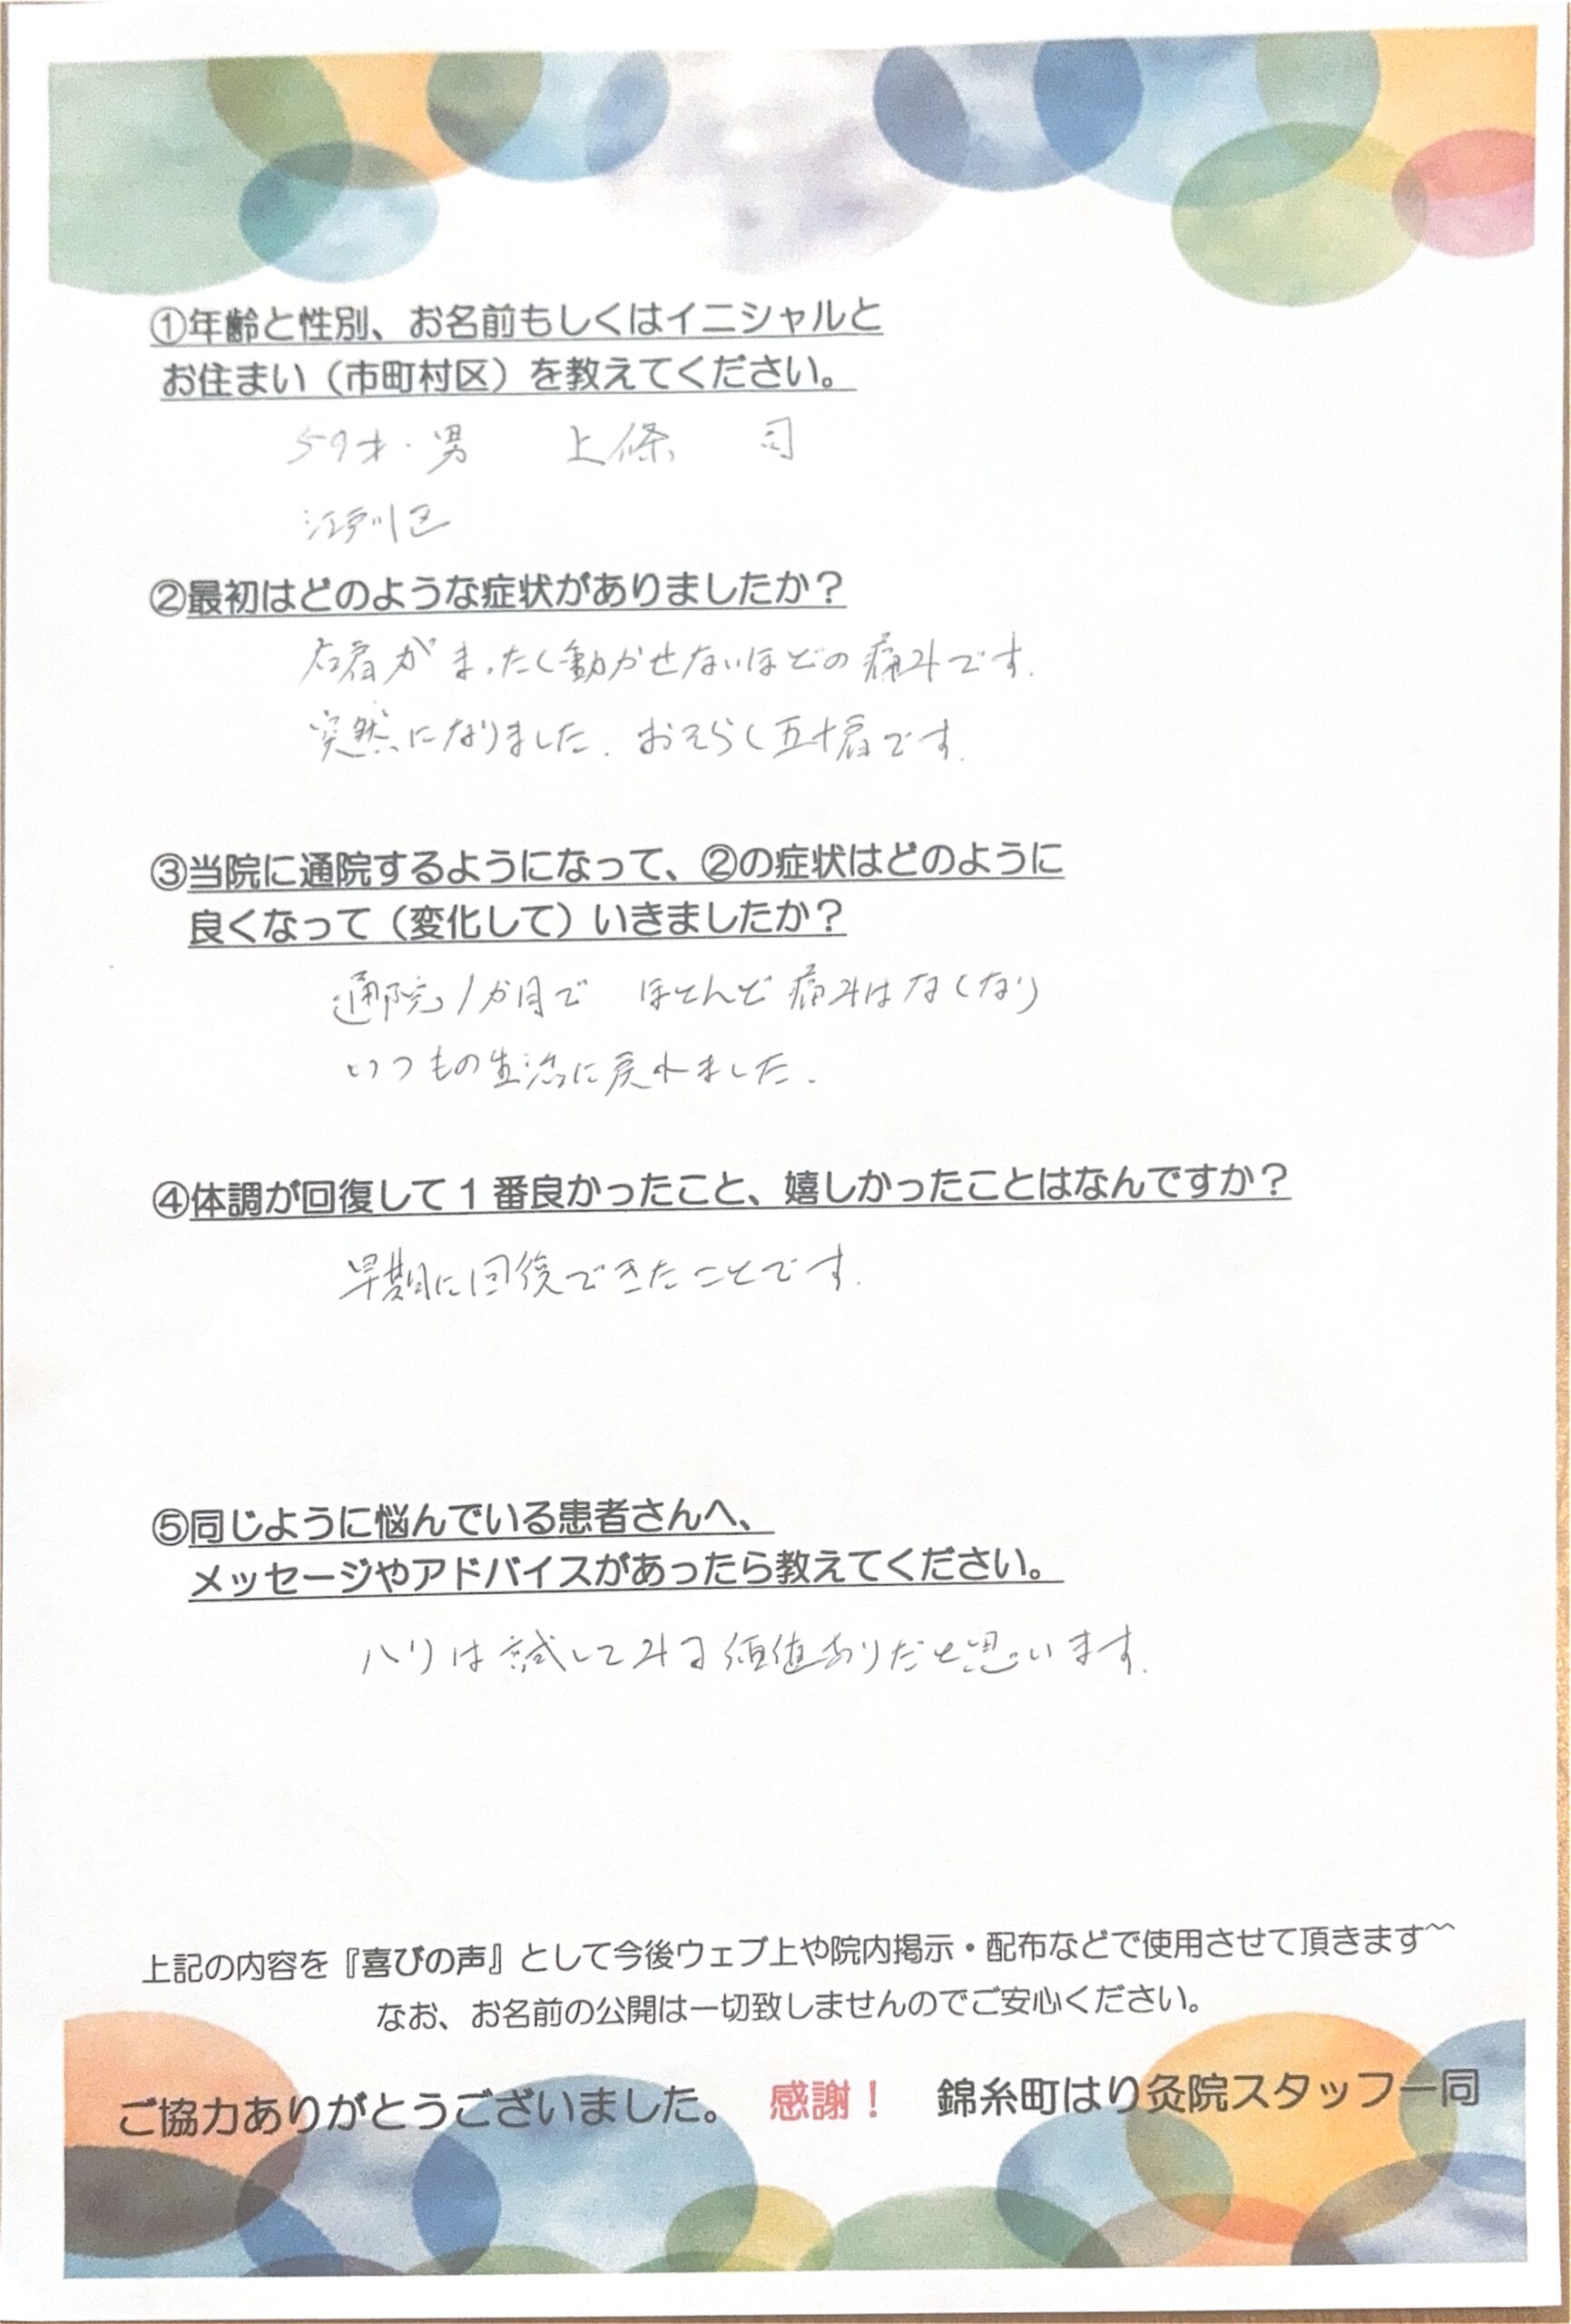 ①年齢と性別、お名前もしくはイニシャルと
お住まい（市町村区）を教えてください。
59才・男 上條 司
江戸川区
②最初はどのような症状がありましたか？
右肩がまったく動かせないほどの痛みです.
突然になりました. おそらく五十肩です.
③当院に通院するようになって、②の症状はどのように
良くなって（変化して）いきましたか？
通院1か月で ほとんど痛みはなくなり
いつもの生活に戻れました.
④体調が回復して１番良かったこと、嬉しかったことはなんですか？
早期に回復できたことです.
⑤同じように悩んでいる患者さんへ、
メッセージやアドバイスがあったら教えてください。
ハリは試してみる価値ありだと思います.
上記の内容を『喜びの声』として今後ウェブ上や院内掲示・配布などで使用させて頂きます^^
なお、お名前の公開は一切致しませんのでご安心ください。
ご協力ありがとうございました。 感謝！ 錦糸町はり灸院スタッフ一同